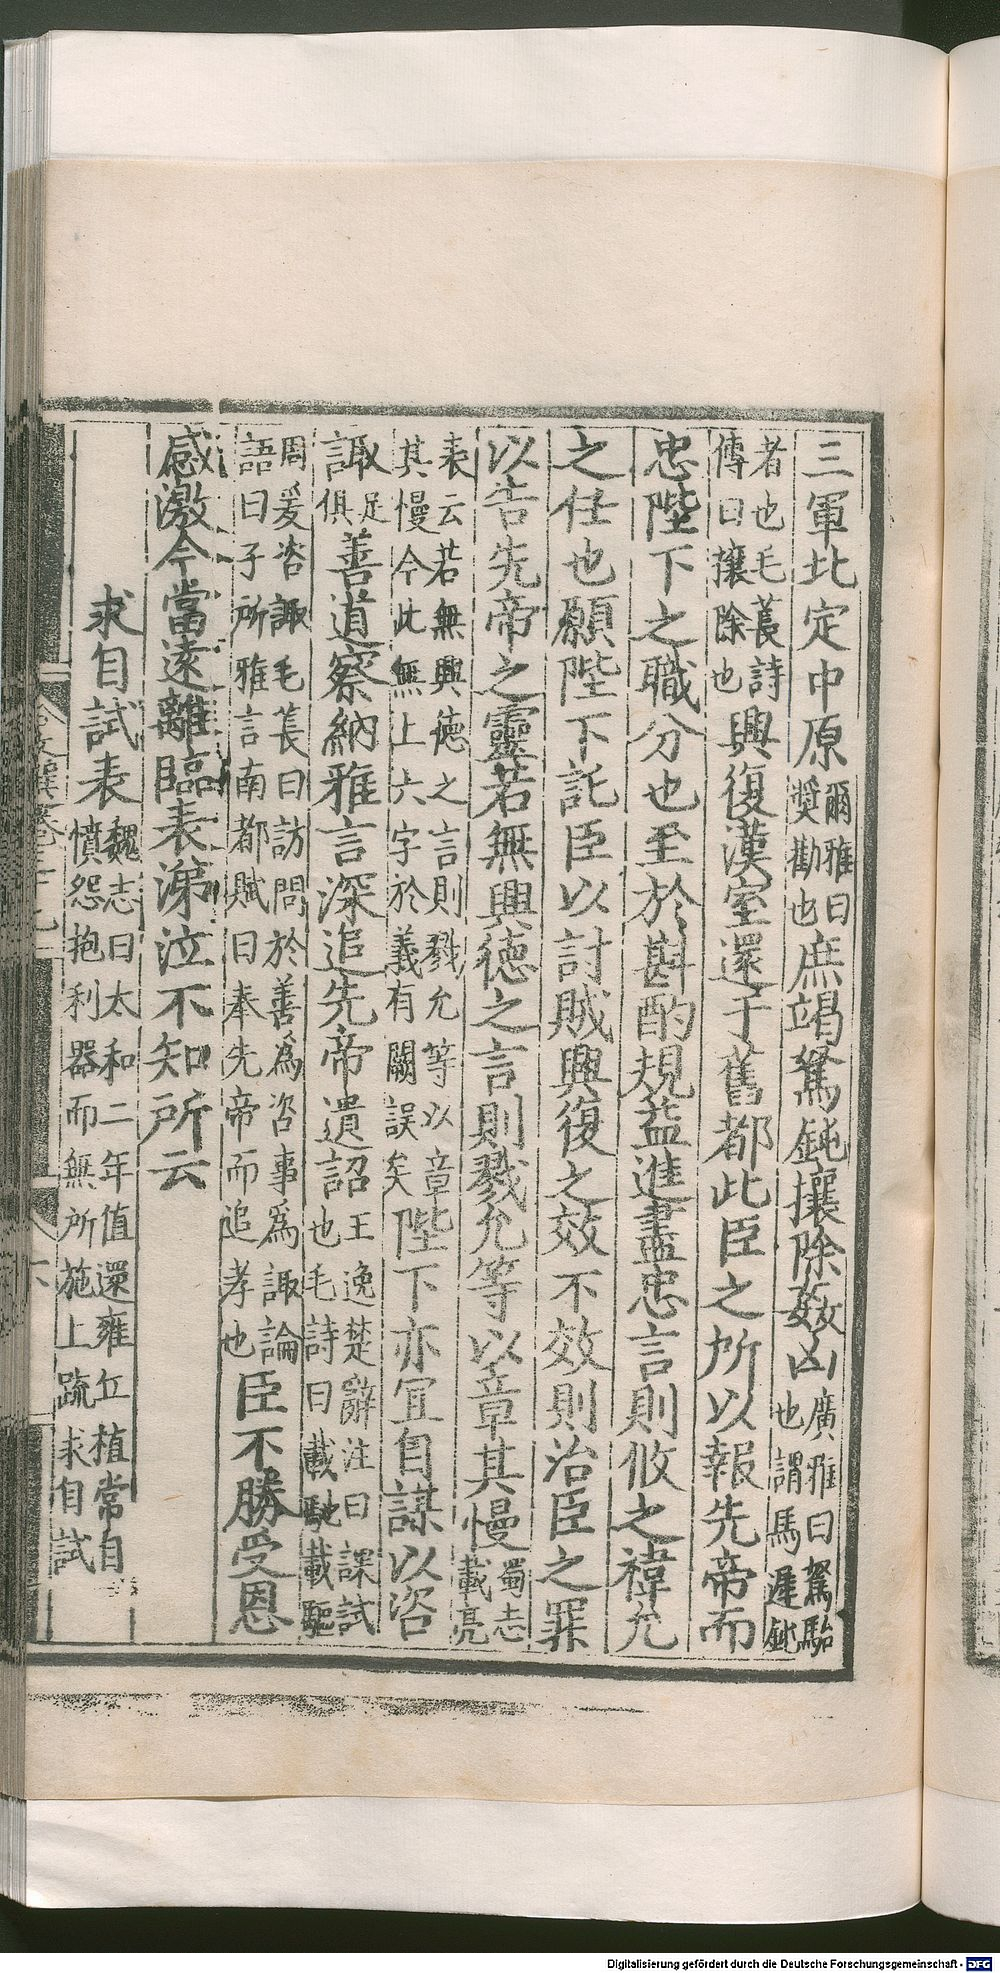 三軍北定中原爾雅曰奬勸也庶竭駑鈍攘除姦凶廣雅曰駑駘也謂馬遲鈍
者也毛萇詩傳曰攘除也興復漢室還于舊都此臣之所以報先帝而
忠陛下之職分也至於斟酌規益進盡忠言則攸之禕允
之任也願陛下託臣以討賊興復之效不效則治臣之罪
以告先帝之靈若無興德之言則戮允等以章其慢蜀志載亮
表云若無興德之言則戮允等以章其慢今此無上六字於義有闕誤矣陛下亦宜自謀以咨
諏足俱善道察納雅言深追先帝遺詔王逸楚辭注曰課試也毛詩曰載馳載驅
周爰咨諏毛萇曰訪問於善爲咨事爲諏論語曰子所雅言南都賦曰奉先帝而追孝也臣不勝受恩
感激今當遠離臨表涕泣不知所云
求自試表魏志曰太和二年值還雍丘植常自憤怨抱利器而無所施上疏求自試
Digitalisierung gefördert durch die Deutsche Forschungsgemeinschaft - DFG